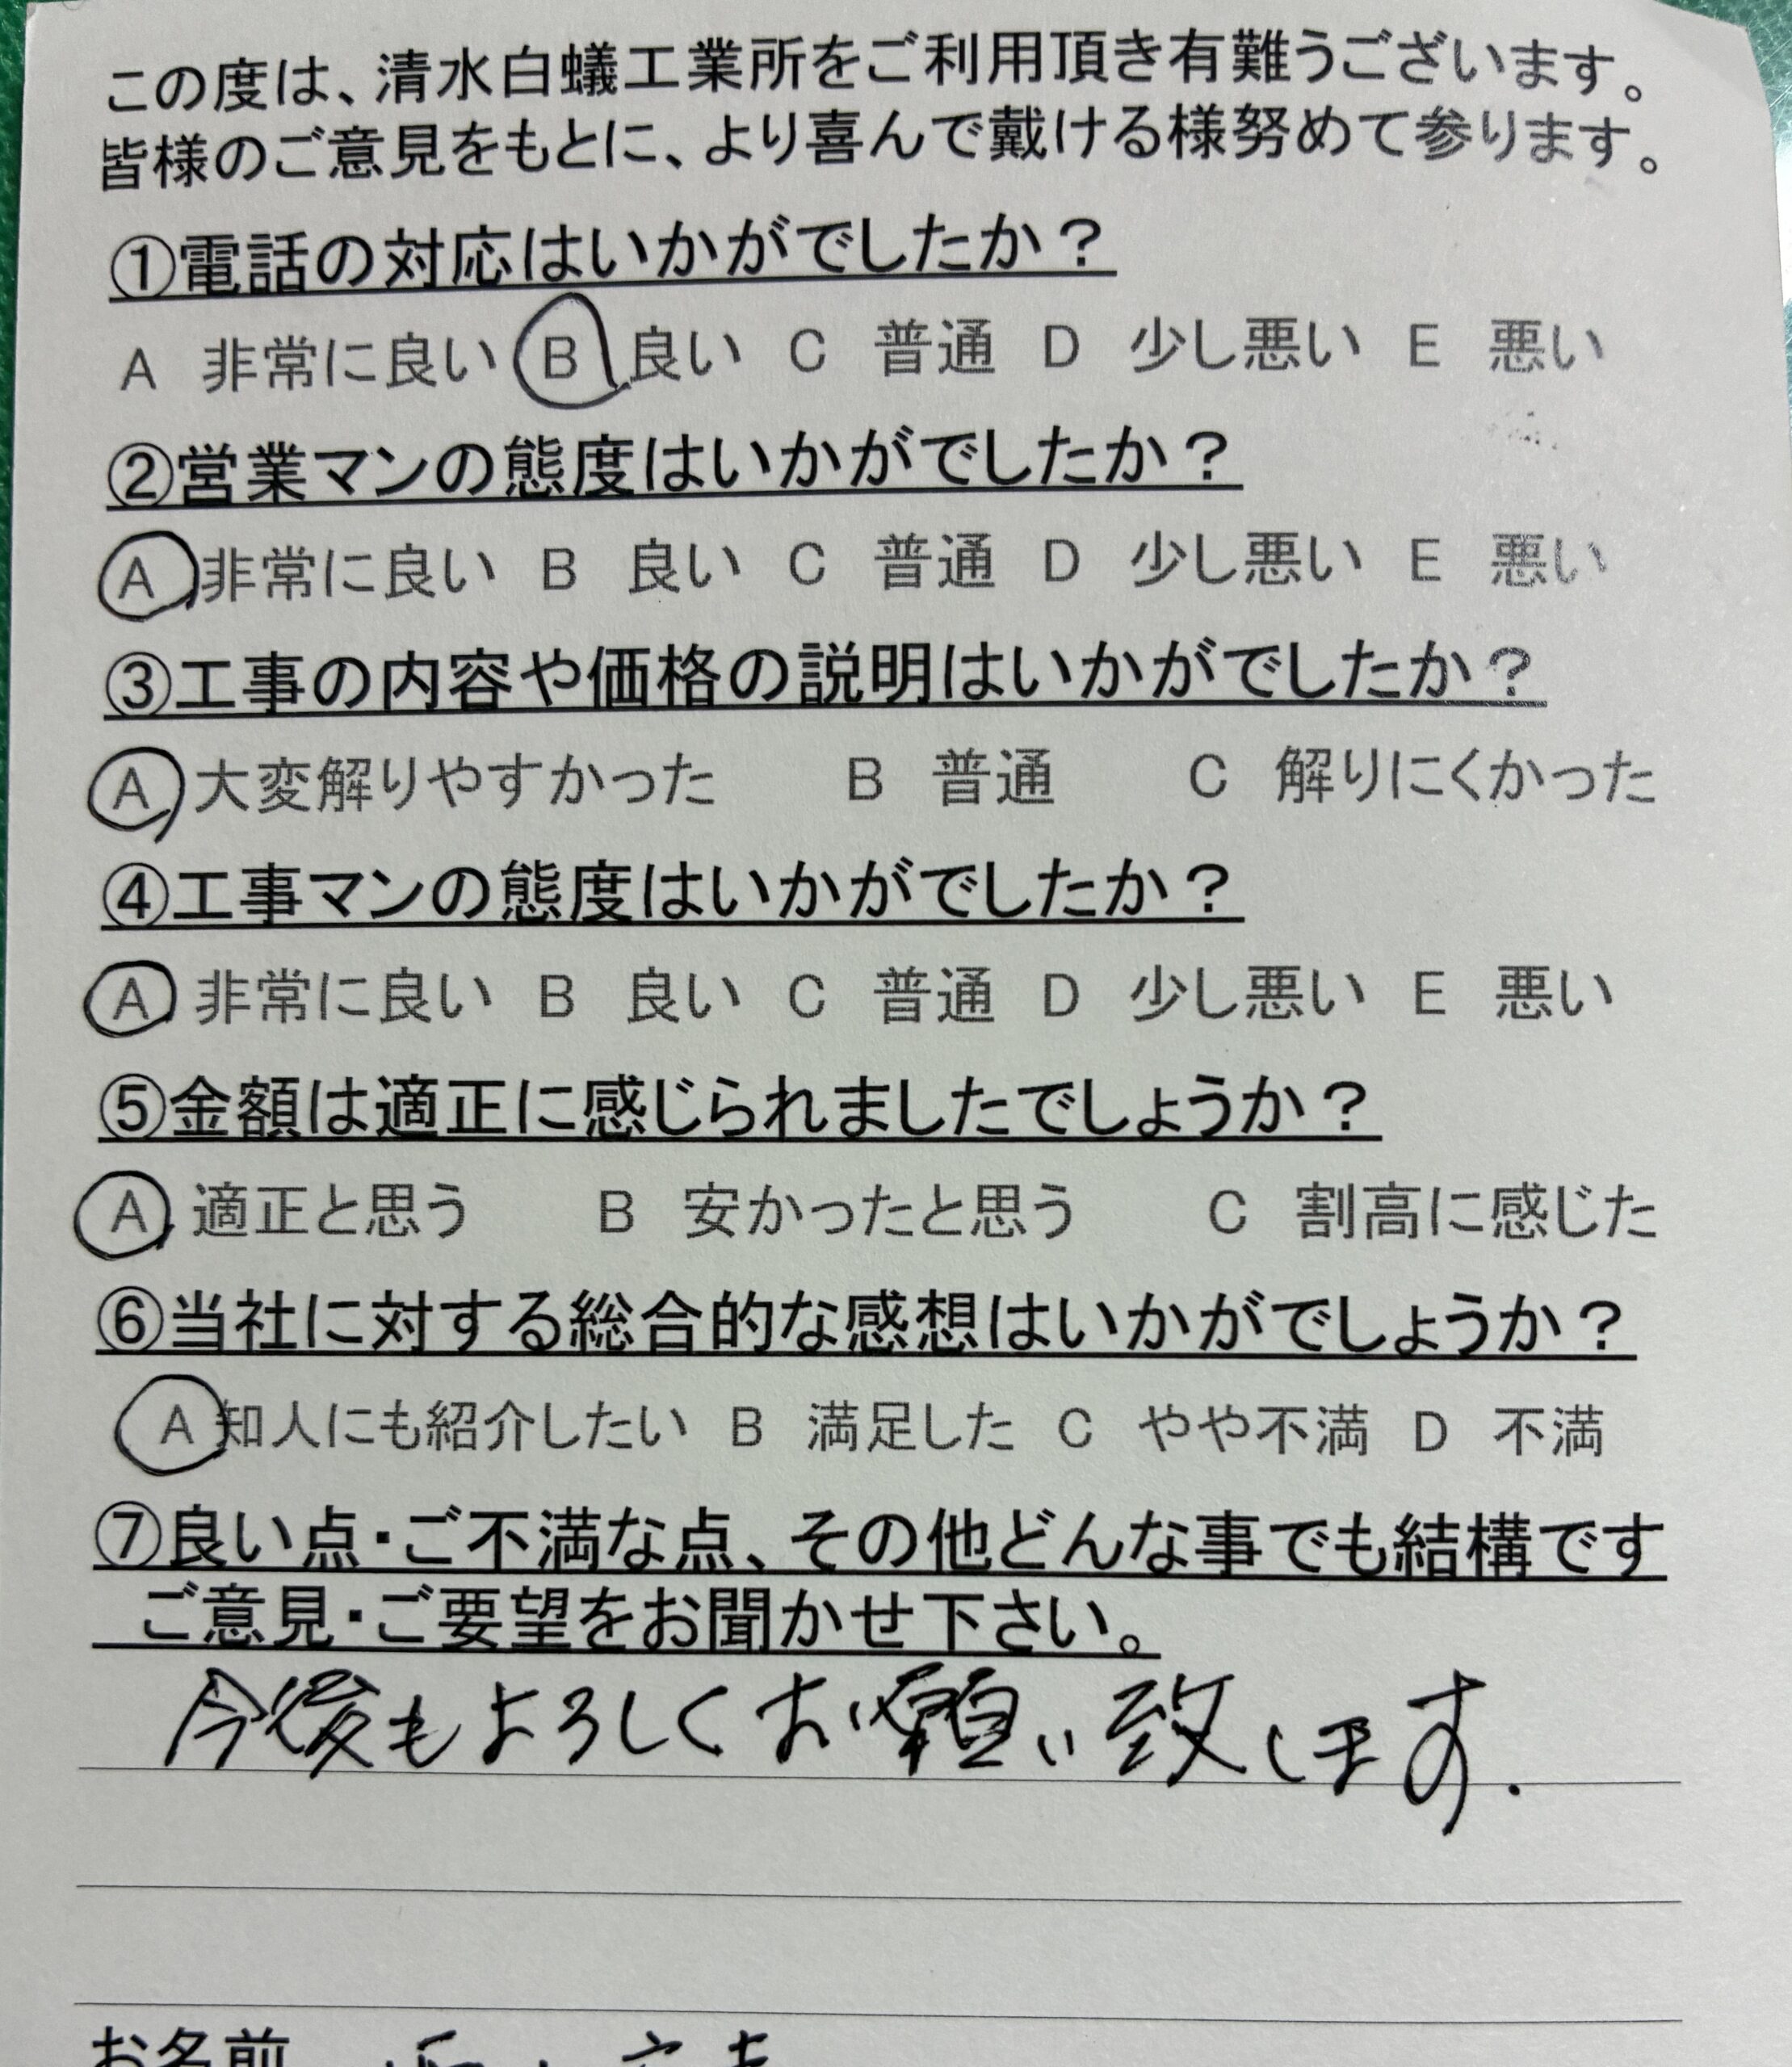 この度は、清水白蟻工業所をご利用頂き有難うございます。
皆様のご意見をもとに、より喜んで戴ける様努めて参ります。
①電話の対応はいかがでしたか？
A 非常に良い B 良い C 普通 D 少し悪い E 悪い
②営業マンの態度はいかがでしたか？
A 非常に良い B 良い C 普通 D 少し悪い E 悪い
③工事の内容や価格の説明はいかがでしたか？
A 大変解りやすかった B 普通 C 解りにくかった
④工事マンの態度はいかがでしたか？
A 非常に良い B 良い C 普通 D 少し悪い E 悪い
⑤金額は適正に感じられましたでしょうか？
A 適正と思う B 安かったと思う C 割高に感じた
⑥当社に対する総合的な感想はいかがでしょうか？
A 知人にも紹介したい B 満足した C やや不満 D 不満
⑦良い点・ご不満な点、その他どんな事でも結構です
ご意見・ご要望をお聞かせ下さい。
今後もよろしくお願い致します.
お名前